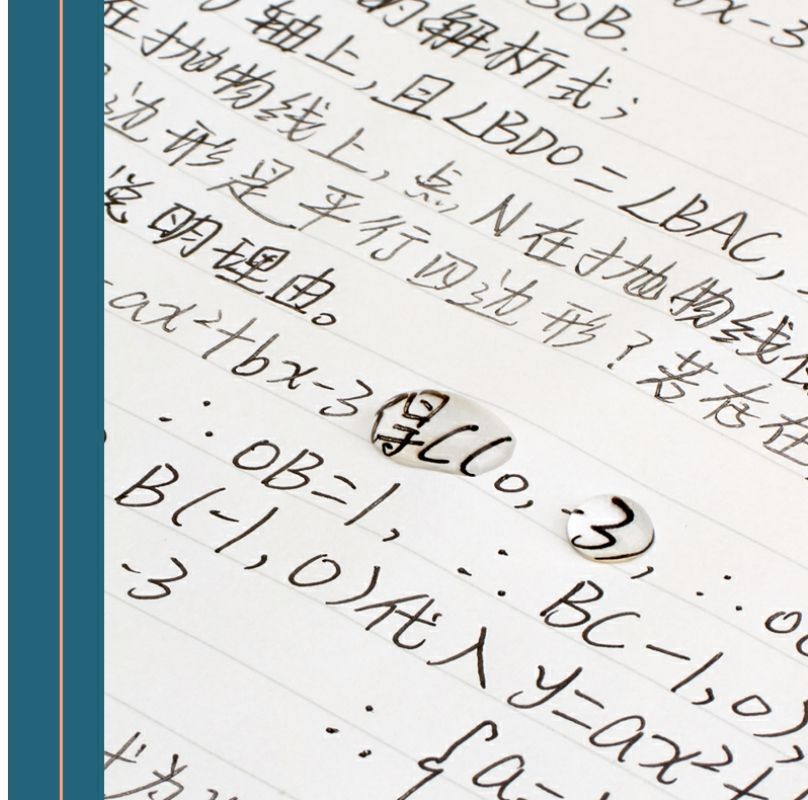 的解析式;
轴上,且∠BDO=∠BAC,
在抛物线上,点N在抛物线
边形是平行四边形?若存在
说明理由。
ax²+bx-3得C(0,-3),∴
∴OB=1,∴BC-1,0),
B(-1,0)代入y=ax²+
-3
∴{a=